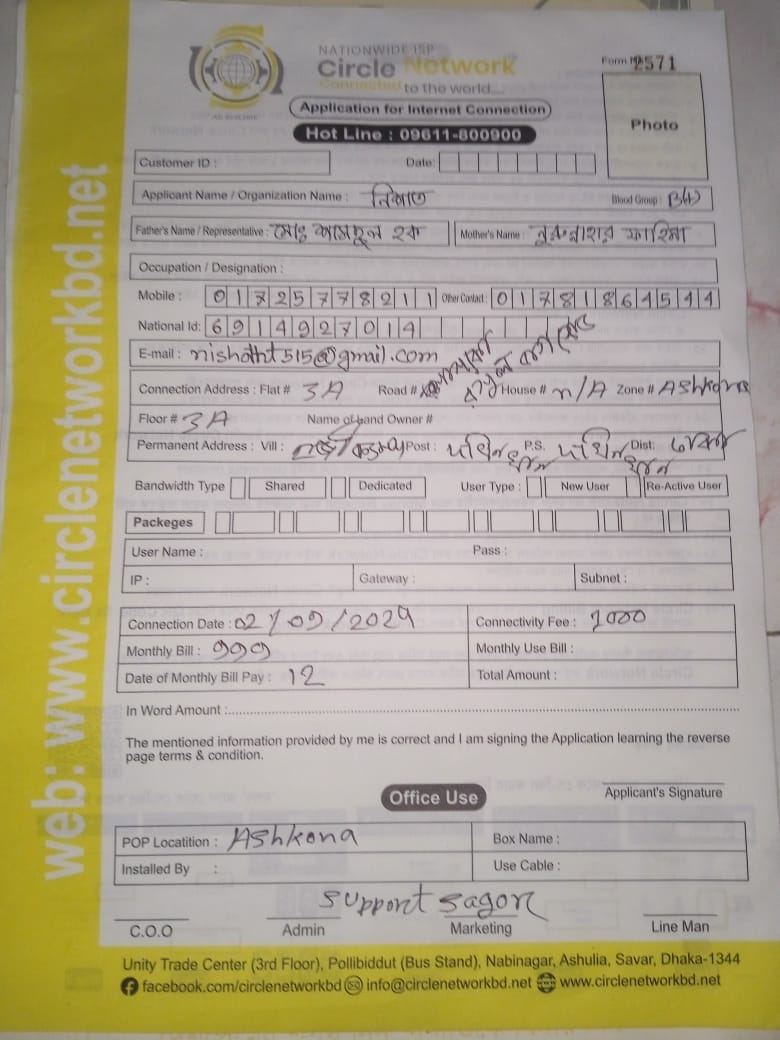 NATIONWIDE ISP
Circle Network
Connected to the world....
Form No 2571
Application for Internet Connection
Hot Line : 09611-800900
Photo
Customer ID :
Date:
Applicant Name / Organization Name : নিশাত Blood Group : B(+)
Father's Name / Representative : মোঃ হক Mother's Name :
Occupation / Designation :
Mobile : 01725778211 Other Contact : 01781864544
National Id: 6914927014
E-mail : nishatht515@gmail.com
Connection Address : Flat # 3A Road # House # n/A Zone # Ashkona
Floor # 3A Name of Land Owner #
Permanent Address : Vill : Post : P.S. Dist:
Bandwidth Type Shared Dedicated User Type : New User Re-Active User
Packeges
User Name : Pass :
IP : Gateway : Subnet :
Connection Date : 02/09/2024 Connectivity Fee : 1000
Monthly Bill : 999 Monthly Use Bill :
Date of Monthly Bill Pay : 12 Total Amount :
In Word Amount :
The mentioned information provided by me is correct and I am signing the Application learning the reverse
page terms & condition.
Applicant's Signature
Office Use
POP Locatition : Ashkona Box Name :
Installed By : Use Cable :
Support Sagor
C.O.O Admin Marketing Line Man
Unity Trade Center (3rd Floor), Pollibiddut (Bus Stand), Nabinagar, Ashulia, Savar, Dhaka-1344
facebook.com/circlenetworkbd info@circlenetworkbd.net www.circlenetworkbd.net
web: www.circlenetworkbd.net